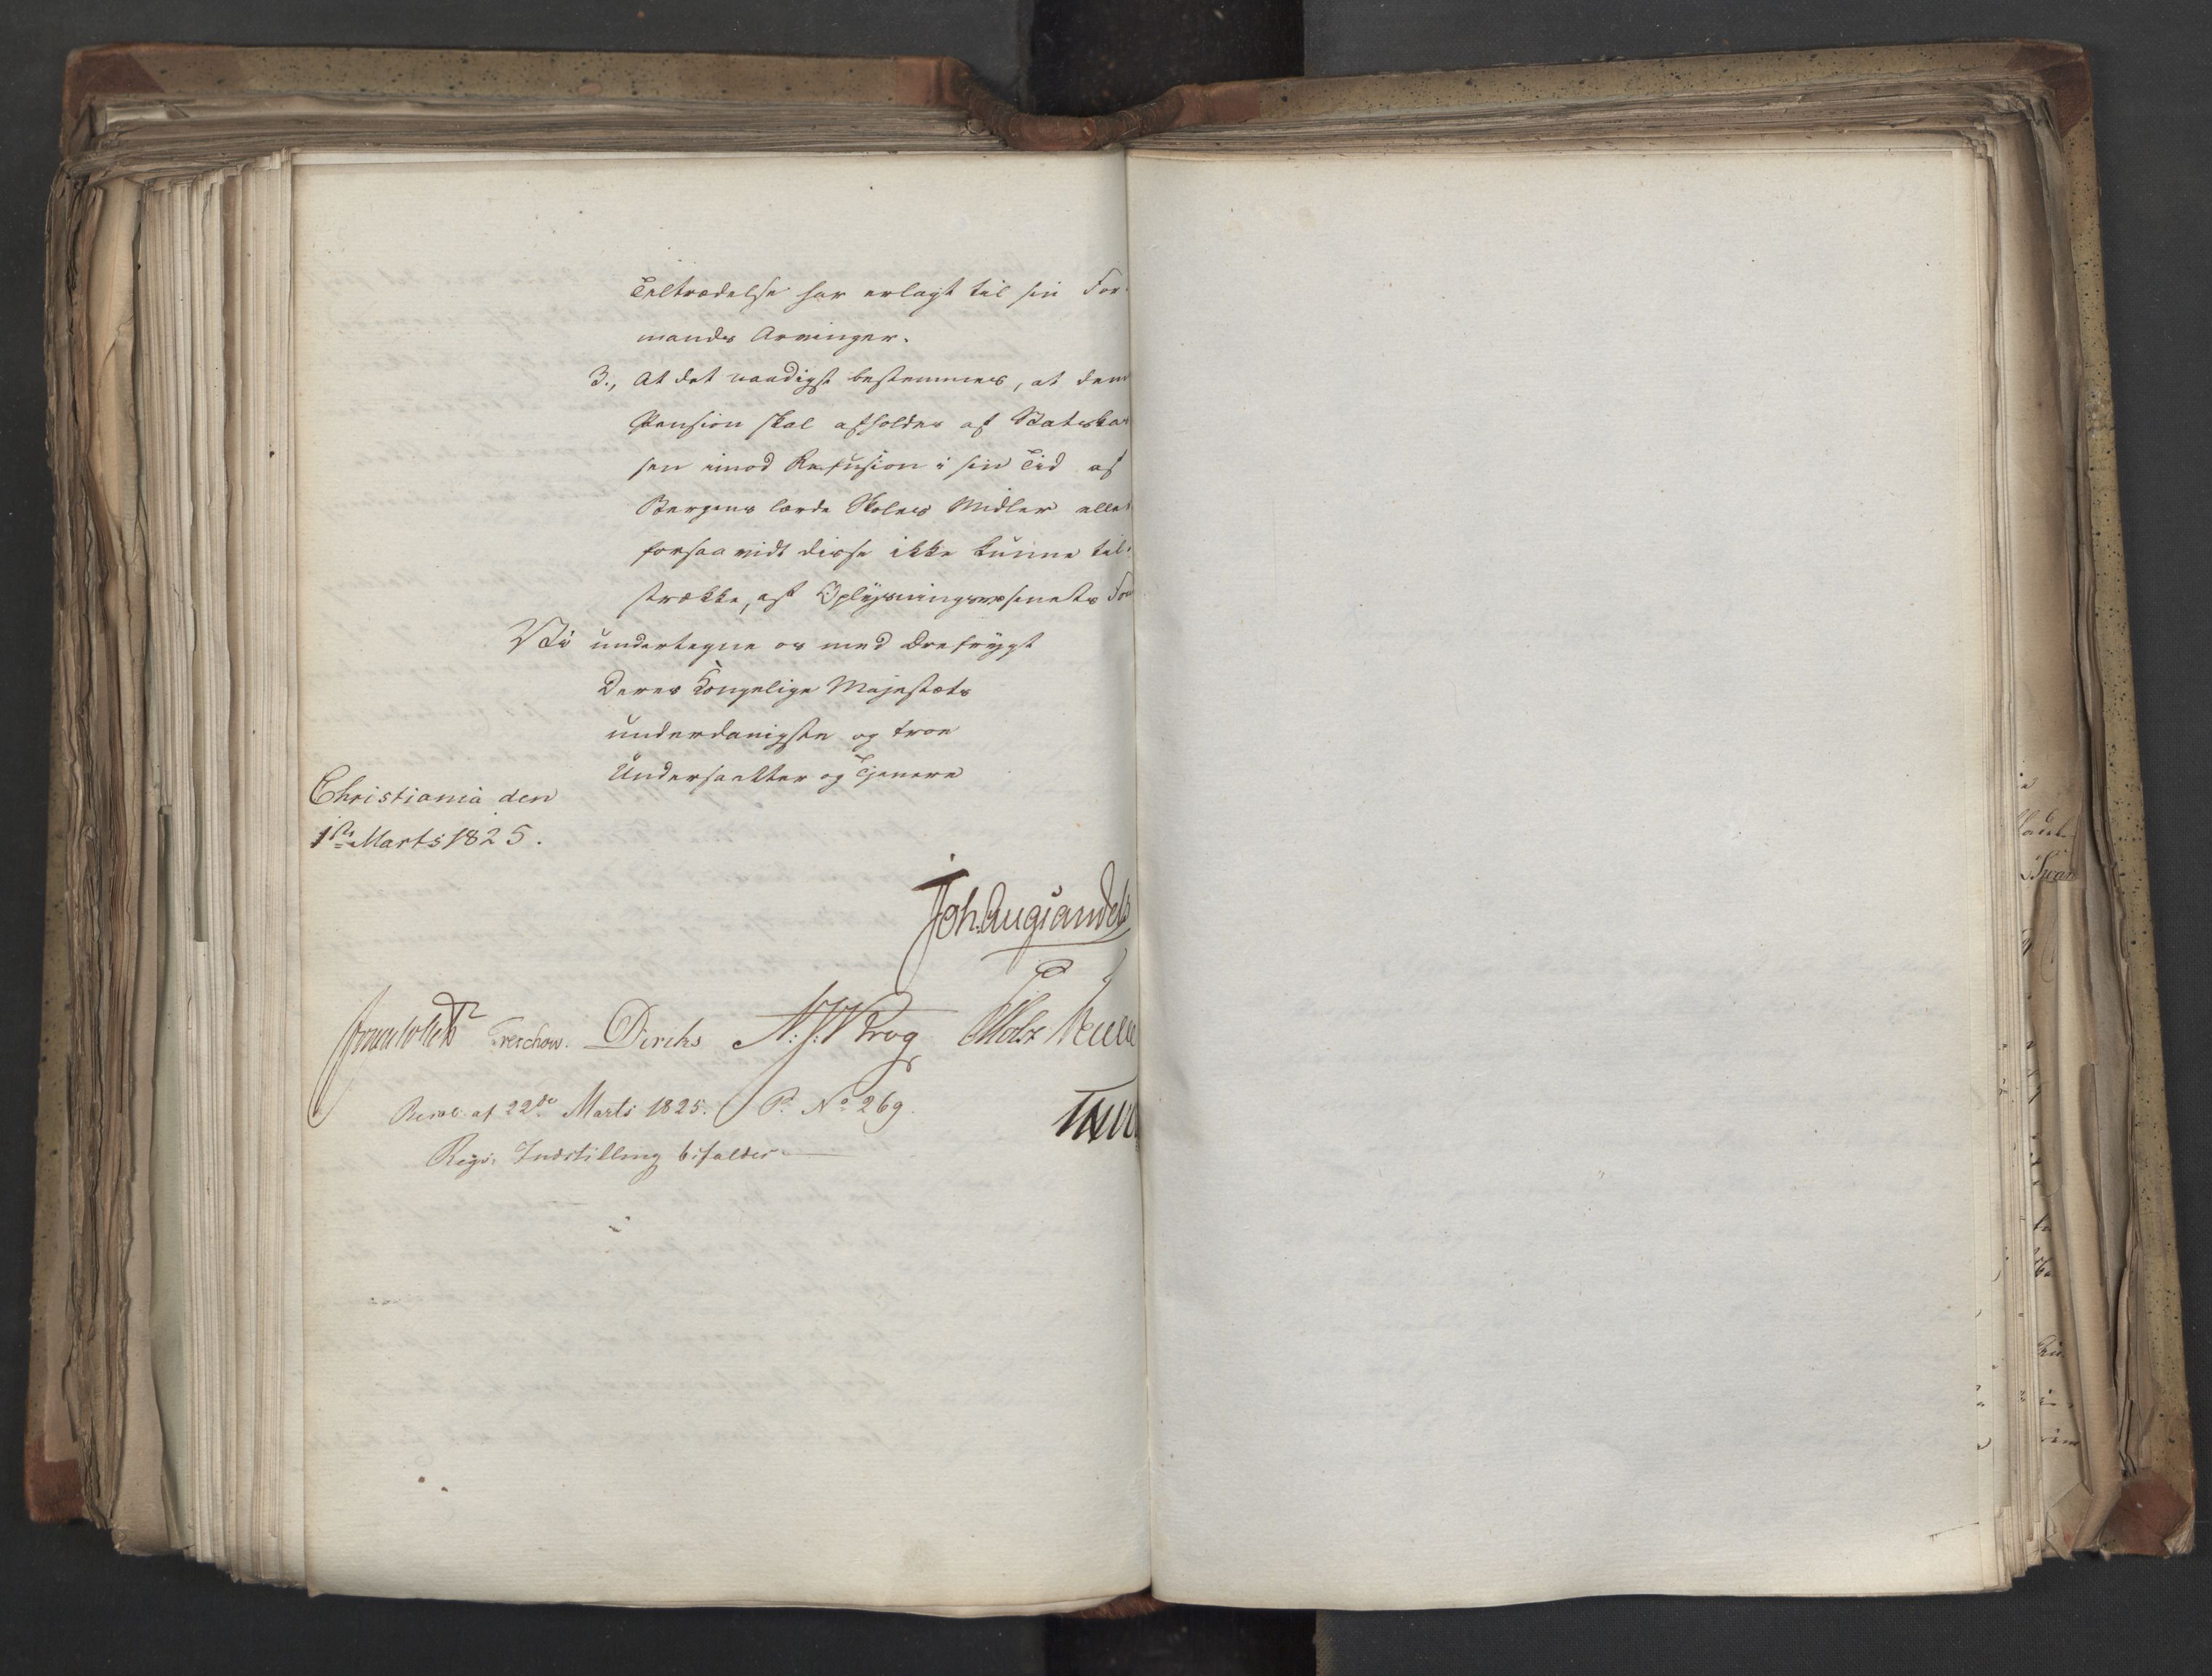 Tiltrædelse har erlagt til sin For-
mands Arvinger.
3., At det naadigst bestemmes, at denne
Pension skal afholdes af Statskas
sen imod Refusion i sin Tid af
Bergens lærde Skoles Midler eller
forsaavidt disse ikke kunne til-
strække, af Oplysningsvæsenets Fond
Vi undertegne os med Ærefrygt
Deres Kongelige Majestæts
underdanigste og troe
Undersaatter og Tjenere
Christiania den
1ste Marts 1825.
Joh. Aug. Sandels
Jonas Collett Treschow. Diriks A: J: W Krog PMotzfeldt
Resol. af 22de Marts 1825. P. No 269.
Regs. Indstilling bifaldes